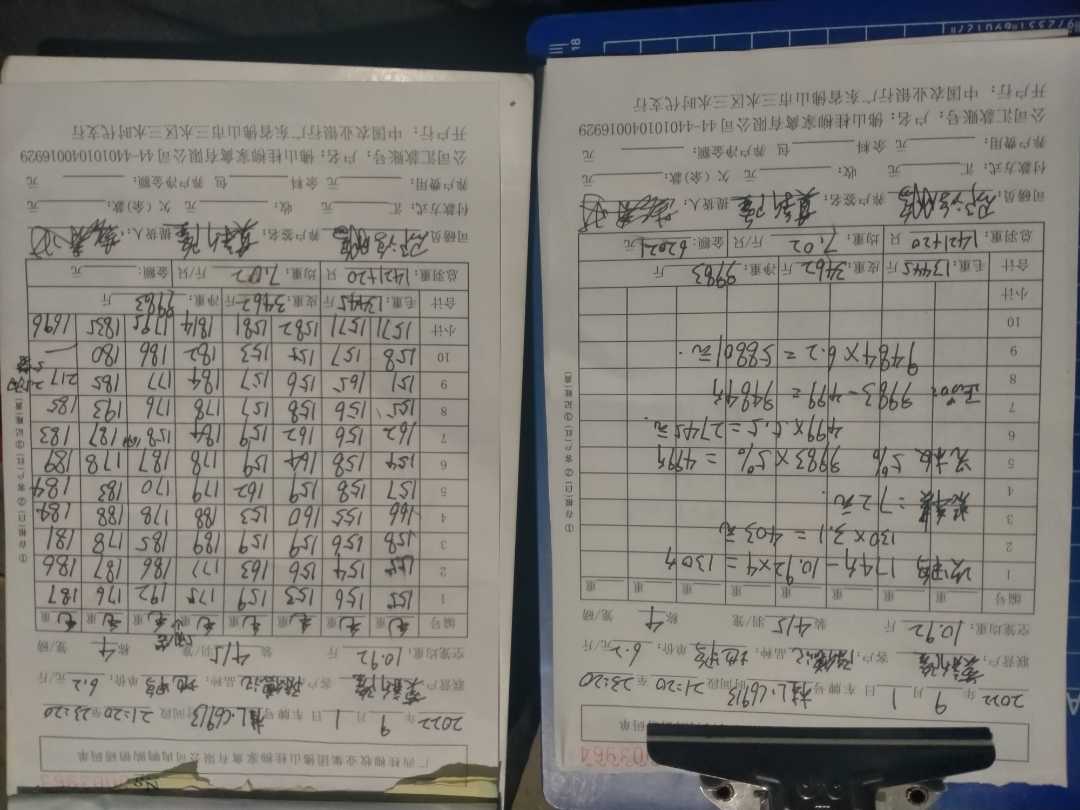 03964
2022年 9月 1日 车牌号 桂L·C6913 时间段 21:20 至 23:20
联营户: 客户: 品种: 单价: 6.2 元/斤
空笼均重: 10.92 斤 装 4/5 羽/笼 称 4 笼/磅
编号 重 重 重 重 重 重 重 重
1 次鸭 174斤-10.92×4=130斤
2 130×3.1=403元
3
4 =72元.
5 5% 9983×5%=499斤
6 499×5.5=2745元.
7 正品: 9983-499=9484斤
8
9 9484×6.2=58801元.
10
小计
合计 毛重: 13445 斤 皮重: 3462 斤 净重: 9983 斤
总羽重: 1421+20 只 均重: 7.02 斤/只 金额: 62021
司磅员 养户签名: 提货人:
付款方式: 汇 元 收: 元 欠(余)款: 元
养户费用: 元 余料 包 养户净金额: 元
公司汇款账号: 户名: 佛山桂柳家禽有限公司 44-440101040016929
开户行: 中国农业银行广东省佛山市三水区三水时代支行
①存根(白) ②客户(红) ③记账(黄)
0003963
广西桂柳牧业集团佛山桂柳家禽有限公司肉鸭购销磅码单
2022年 9月 1日 车牌号 桂L·C6913 时间段 21:20 至 23:20
联营户: 客户: 品种: 单价: 6.2 元/斤
空笼均重: 10.92 斤 装 4/5 羽/笼 称 4 笼/磅
编号 毛重 毛重 毛重 毛重 毛重 毛重 毛重 毛重
1 155 156 153 159 175 192 176 187
2 155 154 156 163 177 186 187 186
3 158 156 159 159 189 185 178 181
4 166 155 160 153 188 178 188 184
5 157 158 159 162 179 170 183 184
6 154 158 164 159 178 187 178 189
7 162 156 162 159 184 158 187 183
8 155 156 158 157 178 176 193 185
9 151 165 156 157 184 177 185 217
10 158 157 154 153 182 186 180 —
小计 1571 1571 1582 1581 1814 1795 1835 1696
合计 毛重: 13445 斤 皮重: 3462 斤 净重: 9983 斤
总羽重: 1421+20 只 均重: 7.02 斤/只 金额: 元
司磅员 养户签名: 提货人:
付款方式: 汇 元 收: 元 欠(余)款: 元
养户费用: 元 余料 包 养户净金额: 元
公司汇款账号: 户名: 佛山桂柳家禽有限公司 44-440101040016929
开户行: 中国农业银行广东省佛山市三水区三水时代支行
①存根(白) ②客户(红) ③记账(黄)
18